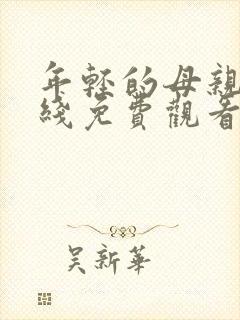 年轻的母亲
线免费观看
吴新华